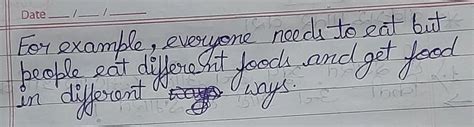 Date __/__/__
For example, everyone needs to eat but
people eat different foods and get food
in different ways.